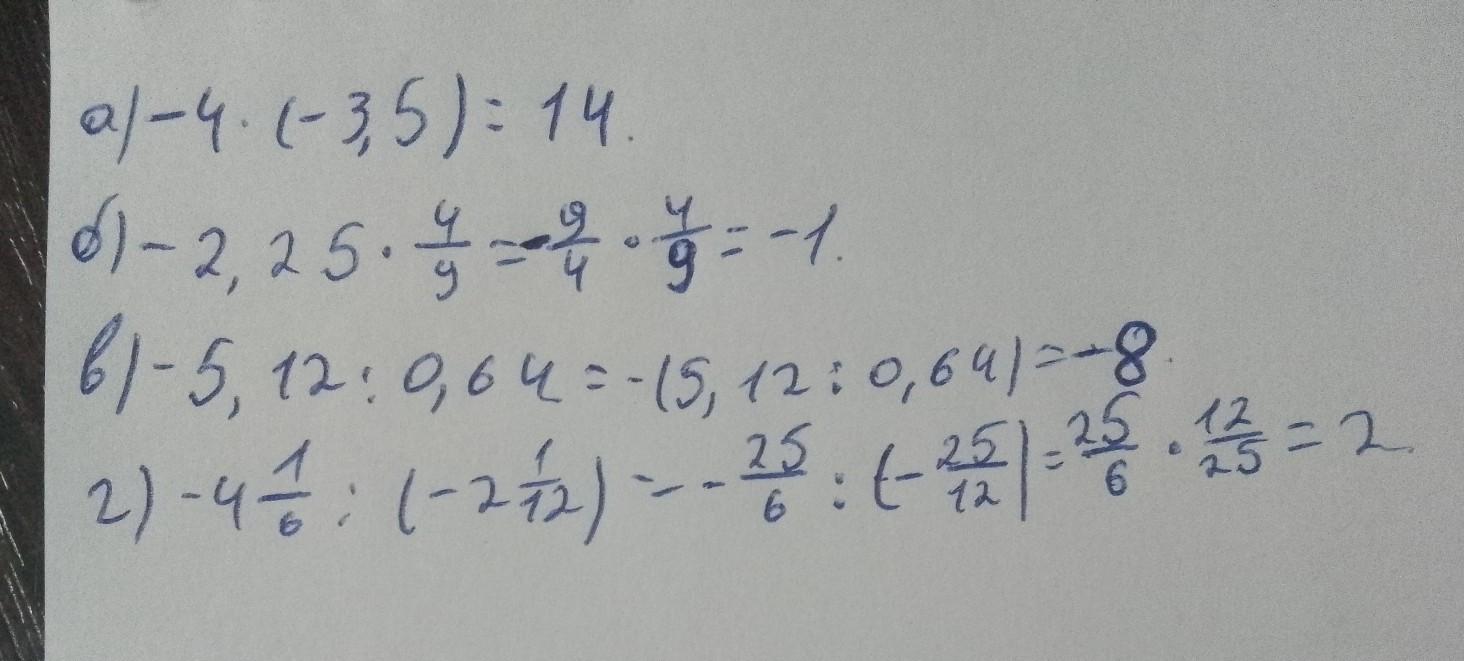 а) -4 · (-3,5) = 14.
б) -2,25 · 4/9 = -9/4 · 4/9 = -1.
в) -5,12 : 0,64 = -(5,12 : 0,64) = -8.
г) -4 1/6 : (-2 1/12) = -25/6 : (-25/12) = 25/6 · 12/25 = 2.